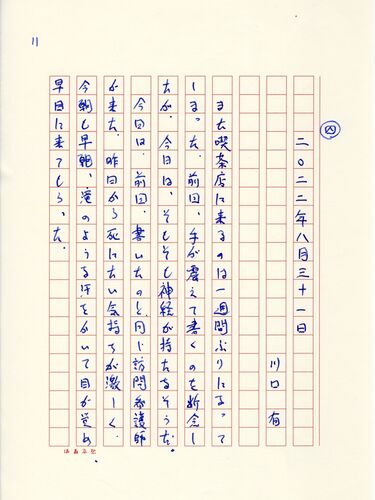 11
㈣
二〇二二年八月三十一日
川口有
また喫茶店に来るのは一週間ぶりになって
しまった。前回、手が震えて書くのを断念し
たが、今日は、そもそも神経が持たなそうだ。
今日は、前回、書いたのと同じ訪問看護師
が来た。昨日から死にたい気持ちが激しく、
今朝も早朝、滝のような汗をかいて目が覚め
早目に来てもらった。